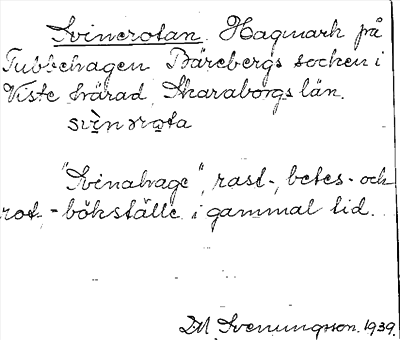 Svinerotan. Hagmark på
Tubbehagen Bärebergs socken i
Viste härad, Skaraborgs län.
svìnrota
"Svinahage", rast-, betes- och
rot, - bökställe i gammal tid.
D.M Svenungsson. 1939.